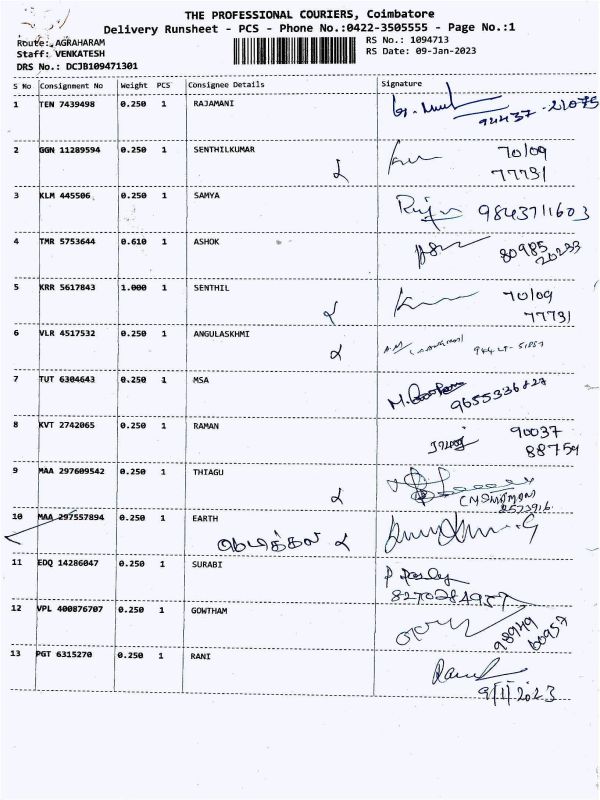 THE PROFESSIONAL COURIERS, Coimbatore
Delivery Runsheet - PCS - Phone No.:0422-3505555 - Page No.:1
Route: AGRAHARAM
Staff: VENKATESH
DRS No.: DCJB109471301
RS No.: 1094713
RS Date: 09-Jan-2023
S No Consignment No Weight PCS Consignee Details Signature
1 TEN 7439498 0.250 1 RAJAMANI
2 GGN 11289594 0.250 1 SENTHILKUMAR 70109
77731
3 KLM 445506 0.250 1 SAMYA 9843711603
4 TMR 5753644 0.610 1 ASHOK 80985
20233
5 KRR 5617843 1.000 1 SENTHIL 70109
77731
6 VLR 4517532 0.250 1 ANGULASKHMI
7 TUT 6304643 0.250 1 MSA 9655336827
8 KVT 2742065 0.250 1 RAMAN 90037
88759
9 MAA 297609542 0.250 1 THIAGU
10 MAA 297557894 0.250 1 EARTH
11 EDQ 14286047 0.250 1 SURABI
8270284957
12 VPL 400876707 0.250 1 GOWTHAM 98949
60957
13 PGT 6315270 0.250 1 RANI
9/1/2023